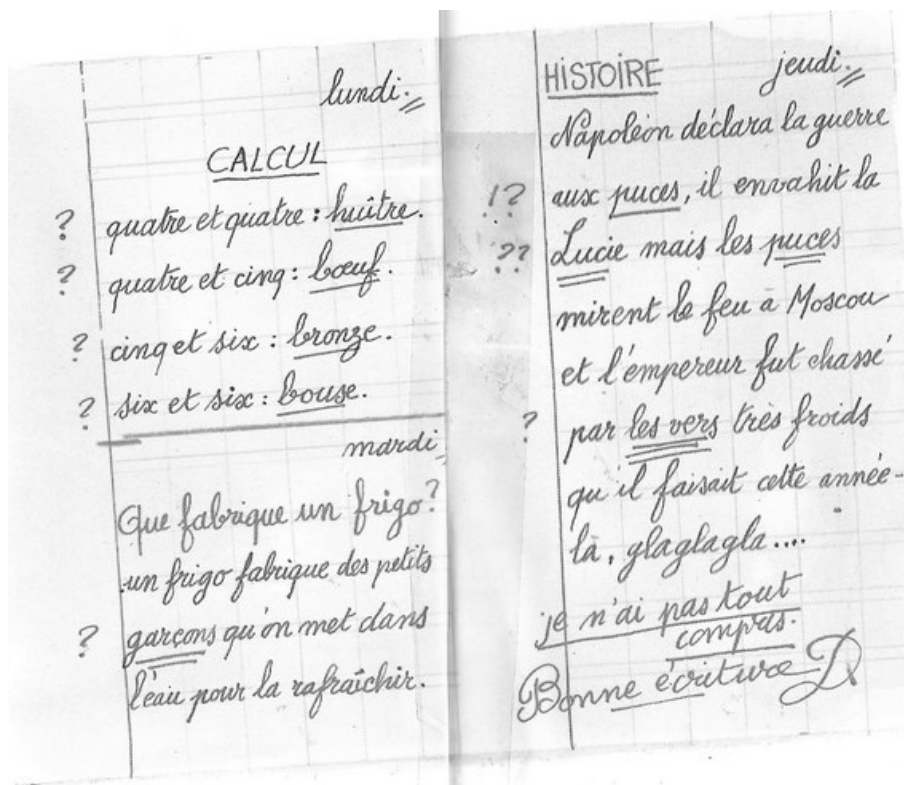 lundi.
CALCUL
? quatre et quatre : huître.
? quatre et cinq : bœuf.
? cinq et six : bronze.
? six et six : bouse.
mardi
Que fabrique un frigo ?
un frigo fabrique des petits
? garçons qu'on met dans
l'eau pour la rafraîchir.
HISTOIRE jeudi.
Napoléon déclara la guerre
!? aux puces, il envahit la
?? Lucie mais les puces
mirent le feu à Moscou
et l'empereur fut chassé
? par les vers très froids
qu'il faisait cette année-
là, glaglagla....
je n'ai pas tout
compris.
Bonne écriture D